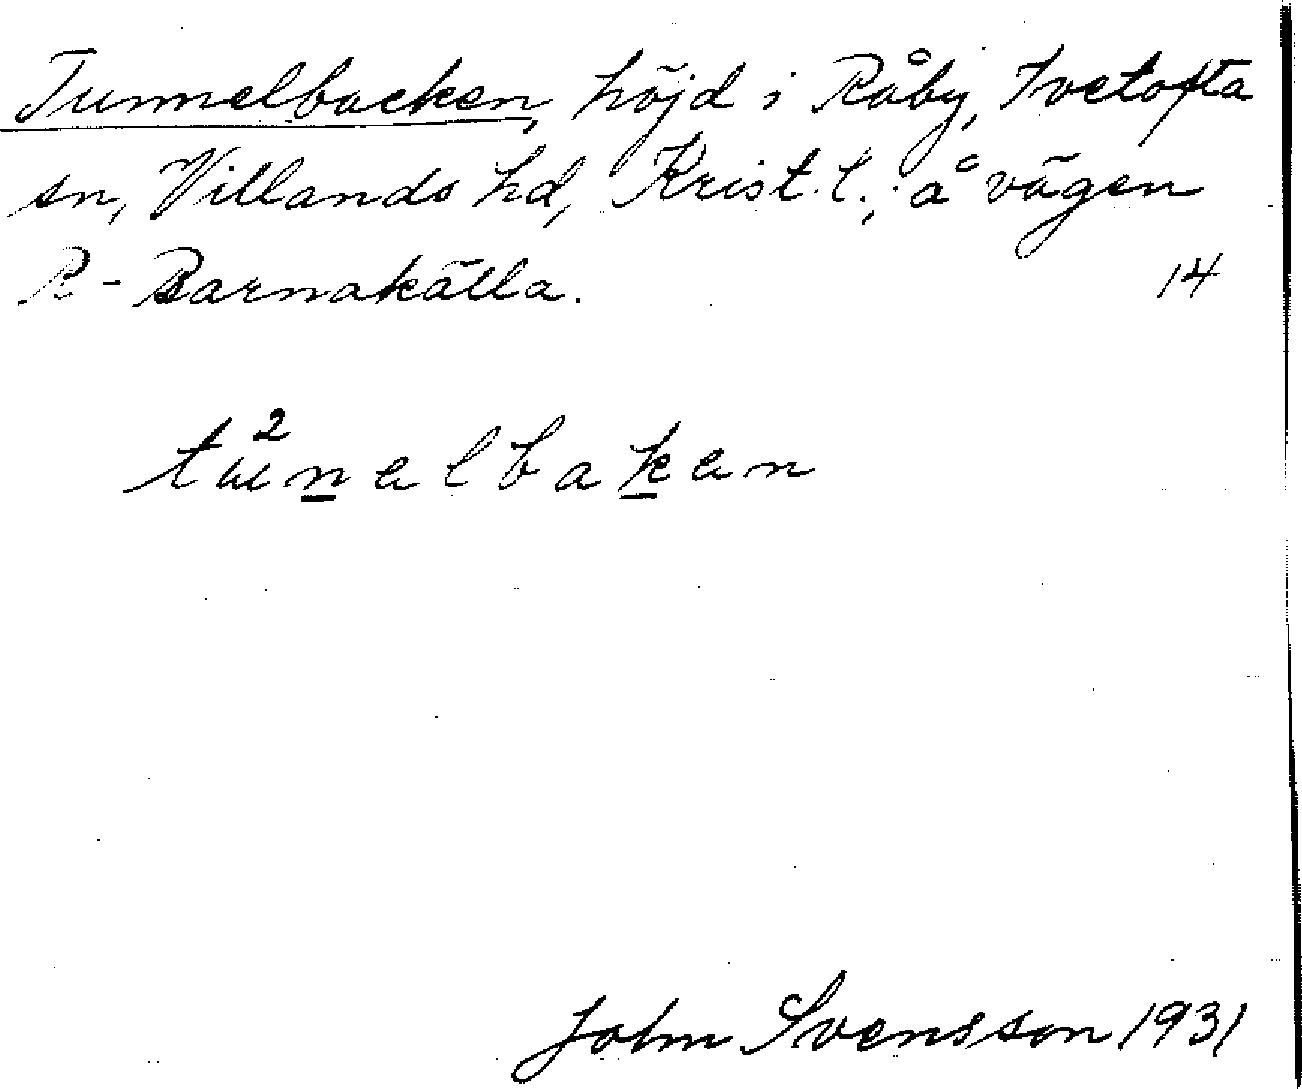 Tunnelbacken, höjd i Råby, Ivetofta
sn, Villands hd, Krist. l., å vägen
R - Barnakälla. 14
tu²nelbaken
John Svensson 1931